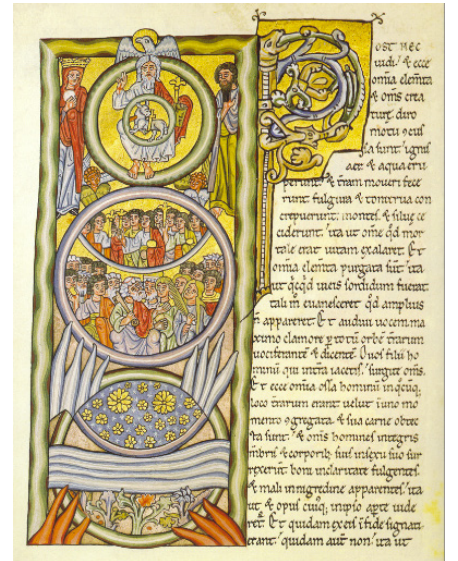 OST HEC
uidi. & ecce
omia elem̅ta
& om̅s crea
ture diro
motu
&
ter & aqua eru
perunt. & tram moueri fece
runt fulgura & tonitrua con
crepuerunt. montes & silue ce
ciderunt. ita ut om̅e qd̅ mor
tale erat uitam exalaret. Et
omia elem̅ta purgata sut ita
ut qcqd in eis sordidum fuerat
tali m euanesceret qd̅ amplius
n appareret. Et audiui uocem ma
ximo clamore p totu orbe trarum
uociferante & dicente. O uos filii ho
minu qui in tra iacetis. surgite om̅s.
Et ecce omia ossa hominu in
loco trarum erant uelut in uno mo
mento & sua carne obtec
ta sunt. & omis homines integris
mbris & corporib;
boni in claritate fulgentes.
& mali in nigredine apparentes. ita
ut & opus in ipso apte uide
ret. Et quidam ex eis i fide signati
erant. quidam aut non. ita ut